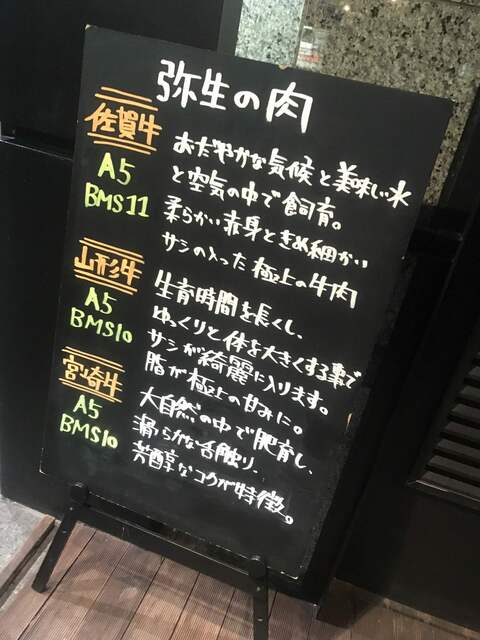 弥生の肉
佐賀牛
A5
BMS11
おだやかな気候と美味しい水
と空気の中で飼育。
柔らかい赤身ときめ細かい
サシの入った極上の牛肉
山形牛
A5
BMS10
生育時間を長くし、
ゆっくりと体を大きくする事で
サシが綺麗に入ります。
脂が極上の甘みに。
宮崎牛
A5
BMS10
大自然の中で肥育し、
滑らかな舌触り、
芳醇なコクが特徴。